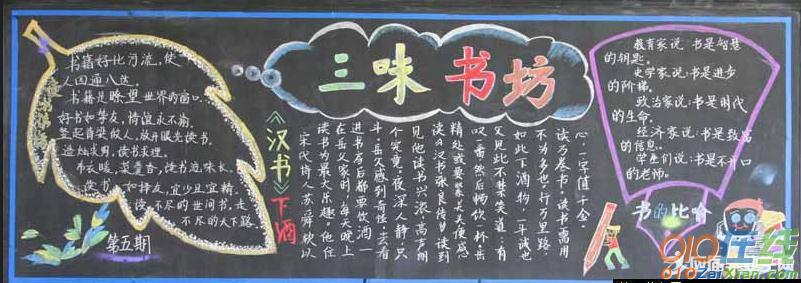 书籍好比河流,使
人四通八达。
书籍是瞭望世界的窗口。
好书如挚友,情谊永不渝。
竖起脊梁做人,放开眼光读书。
造烛求明,读书求理。
布衣暖,菜羹香,读书滋味长。
读书如择友,宜少且宜精。
不尽的世间书,走
不尽的天下路。
第五期
三味书坊
《汉书》下酒
宋代诗人苏舜钦以
读书为最大乐趣。他住
在岳父家时,每天晚上
进书房后都要饮酒一
斗。岳父感到奇怪,去看
个究竟。夜深人静,只
见他读书兴浓,高声朗
读《汉书张良传》读到
精处或要紧关头便感
叹一番,然后畅饮一杯。岳
父见此不禁笑道:有
如此下酒物,一斗诚也
不为多也。行万里路,
读万卷书。读书需用
心,一字值千金。
教育家说:书是智慧
的钥匙。
史学家说:书是进步
的阶梯。
政治家说:书是时代
的生命。
经济家说:书是致富
的信息。
学生们说:书是不开口
的老师。
书的比喻
910在线
910zaixian.com